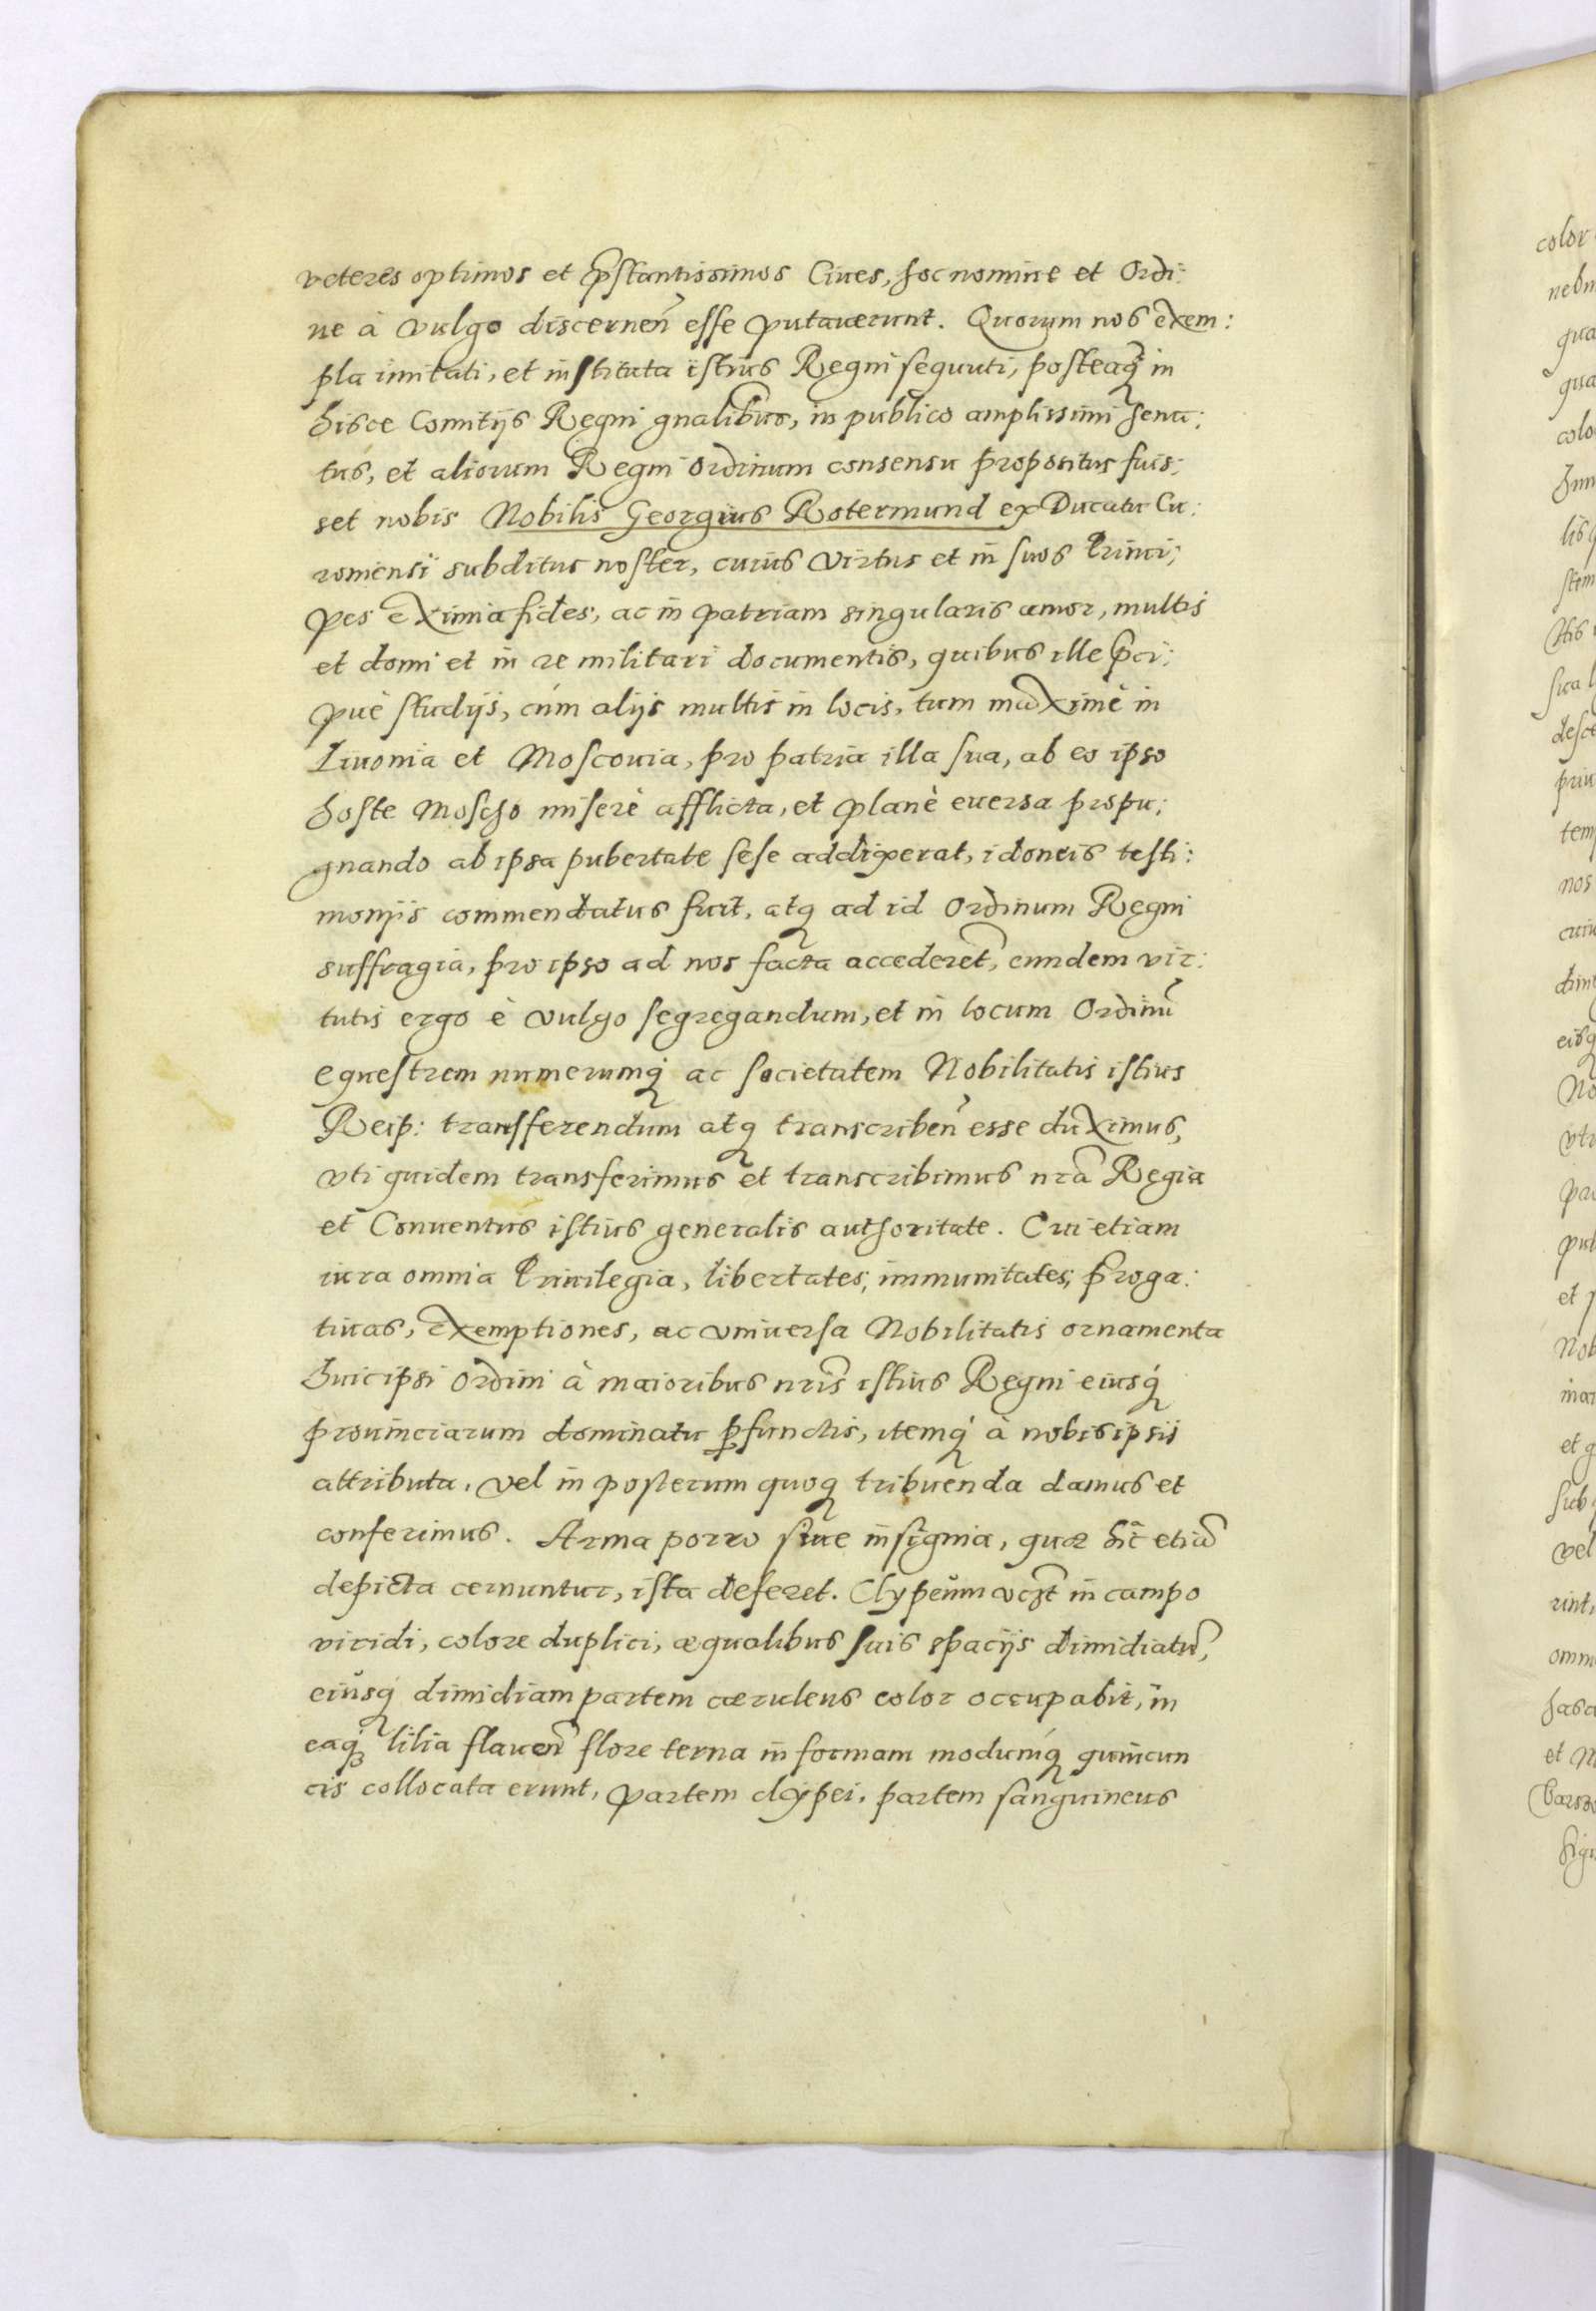 veteres optimos et p̃stantissimos Ciues, hoc nomine et Ordi:
ne à vulgo discernen̄ esse putauerunt. Quorum nos exem:
pla imitati, et instituta istius Regni sequuti, posteaq̃ in
hisce Comitijs Regni gn̄alibus, in publico amplissimi Sena:
tus, et aliorum Regni Ordinum consensu propositus fuis:
set nobis Nobilis Georgius Rotermund ex Ducatu Cu:
ronensi subditus noster, cuius virtus et in suos Princi:
pes eximia fides, ac in patriam singularis amor, multis
et domi et in re militari documentis, quibus ille p̃ci:
puè studijs, cúm alijs multis in locis, tum maximè in
Liuonia et Moscouia, pro patria illa sua, ab eo ipso
hoste Moscho miserè afflicta, et planè euersa propu:
gnando ab ipsa pubertate sese addixerat, idoneis testi:
monijs commendatus fuit, atq̨ ad id Ordinum Regni
suffragia, pro ipso ad nos facta accederet̃, eundem vir:
tutis ergo è vulgo segregandum, et in locum Ordinū
equestrem numerumq̨́ ac societatem Nobilitatis istius
Reip: transfferendum atq̨ transcriben̄ esse duximus,
vti quidem transferimus et transcribimus nr̃a Regia
et Conuentus istius generalis authoritate. Cui etiam
iura omnia Priuilegia, libertates, immunitates, p̃roga:
tiuas, exemptiones, ac vniuersa Nobilitatis ornamenta
huic ipsi Ordini à maioribus nr̃is istius Regni eiusq̨́
prouinciarum dominatu ꝑfunctis, itemq̨́ à nobis ipsis
attributa, vel in posterum quoq̨ tribuenda damus et
conferimus. Arma porro siue insignia, quæ hic etiā
depicta cernuntur, ista deferet. Clypeum vcz̃t in campo
viridi, colore duplici, æqualibus suis spacijs dimidiatū,
eiusq̨́ dimidiam partem cæruleus color occupabit, in
eaq̨́ lilia flauen̄ flore terna in formam modumq̨́ quincun
cis collocata erunt, partem clypei, partem sanguineus
color